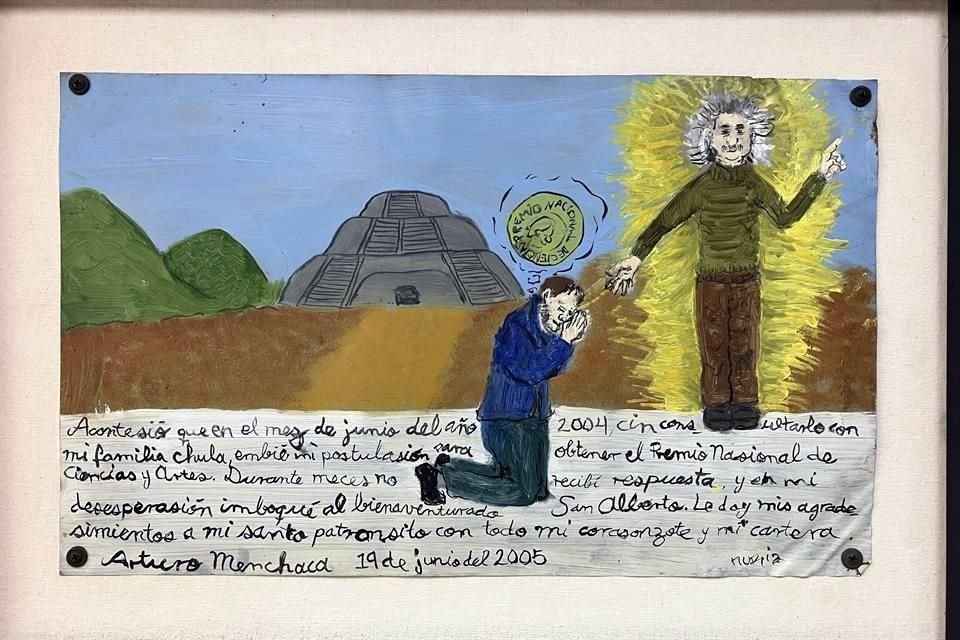 PREMIO NACIONAL DE CIENCIAS
Acontesió que en el mez de junio del año 2004, cin consultarlo con
mi familia chula, embié mi postulasión para obtener el Premio Nasional de
Ciencias y Artes. Durante meces no recibí respuesta, y en mi
desesperasión imboqué al bienaventurado San Alberto. Le doy mis agrade
simientos a mi santo patronsito con todo mi corasonzote y mi cartera.
Arturo Menchaca 19 de junio del 2005